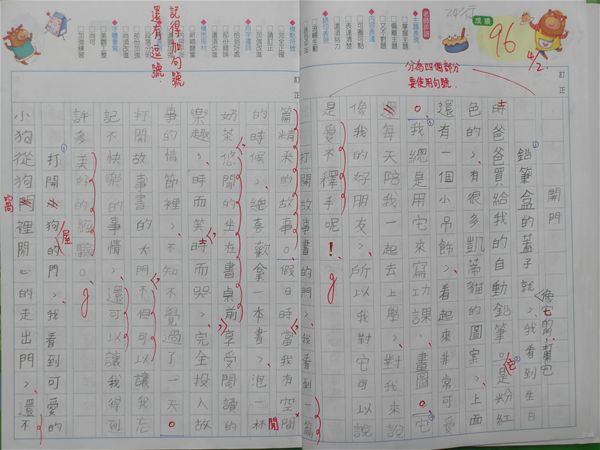 成績
96
4/2
分為四個部分
要使用句號。
訂正
開門
鉛筆盒的蓋子就、我看到生日
時爸爸買給我的自動鉛筆，是粉紅
色的、有很多凱蒂貓的圖案、上面
還有一個小吊飾、看起來非常可愛
。我總是用它來寫功課、畫圖。它
還每天陪我一起去上學、對我來說
像我的好朋友、所以我對它可以說
是愛不釋手呢！
打開故事書的門、我看到一篇
記得加句號
還有逗號.
訂正
篇精采的故事。假日時當我有空閒
的時候、總喜歡拿一本書、泡一杯
奶茶悠閒的坐在書桌前享受閱讀的
樂趣、時而笑時而哭、完全投入故
事的情節裡、不知不覺過了一天。
打開故事書的大門不但可以讓我忘
記不快樂的事情、還可以讓我得到
許多美好的經驗。
打開狗屋的門、我看到可愛的
小狗從狗窩裡開心的走出門、還不